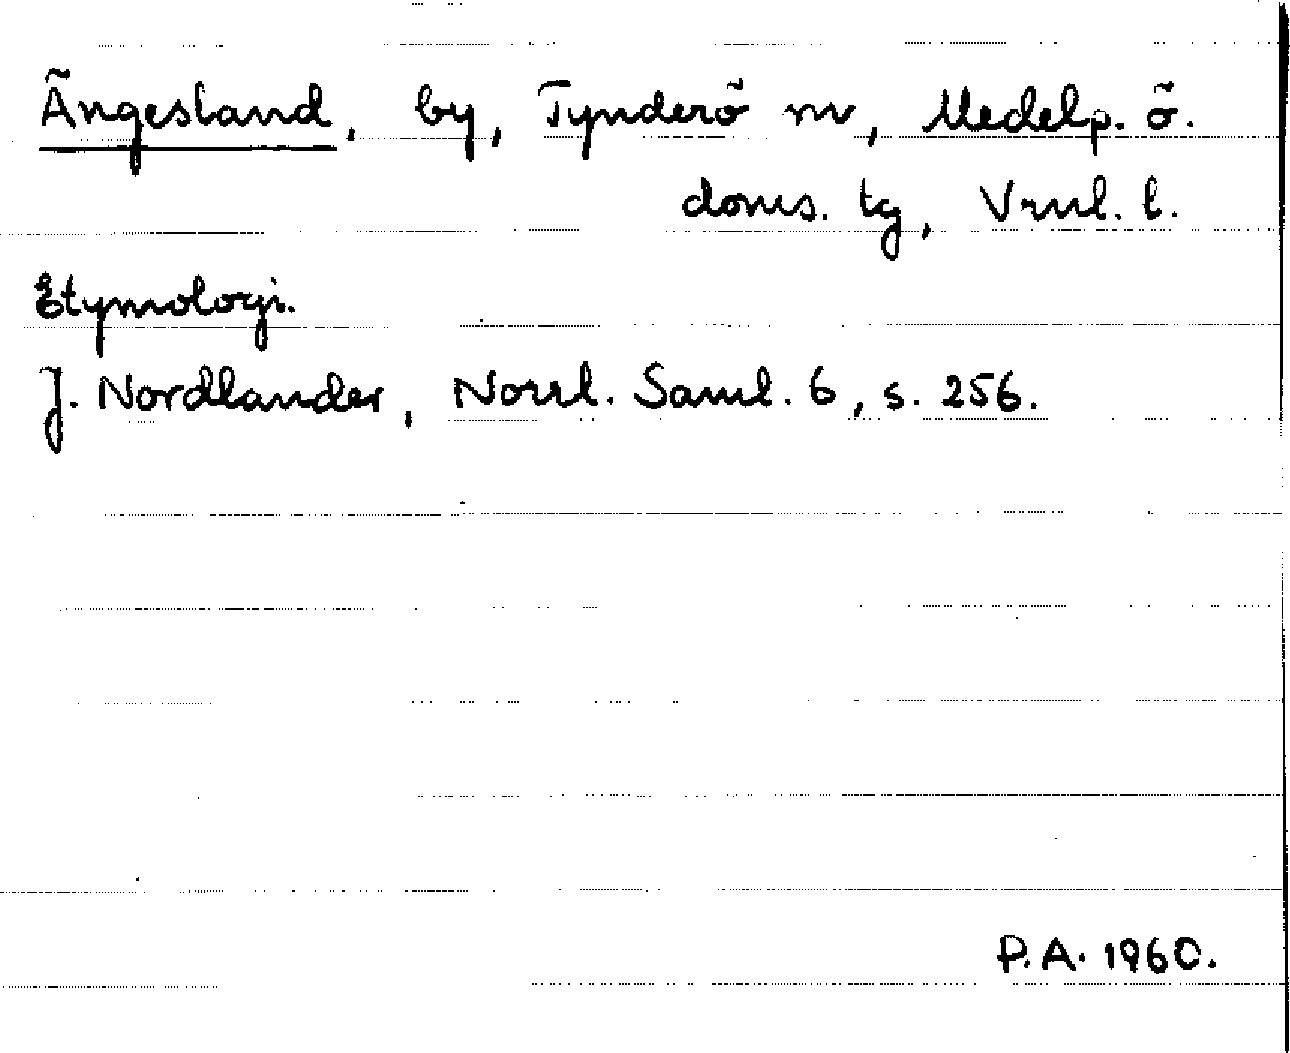 Ängesland, by, Tynderö sn, Medelp. ö.
doms. tg, Vrnl. l.
Etymologi.
J. Nordlander, Norrl. Saml. 6, s. 256.
P.A. 1960.